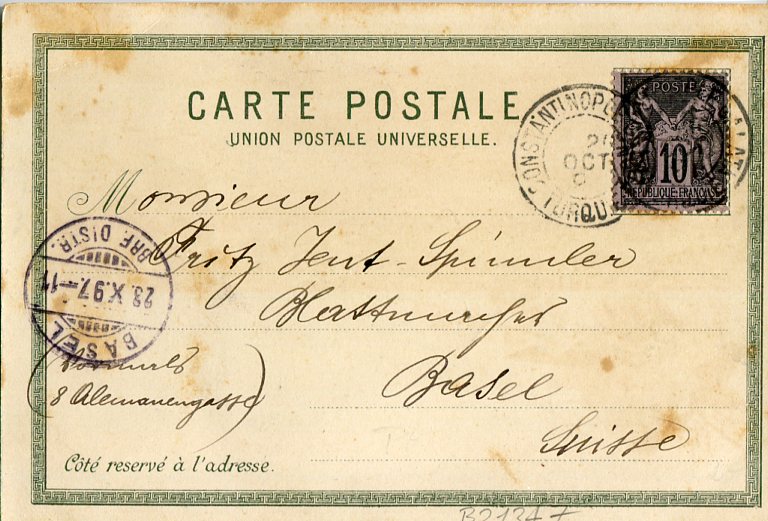 CARTE POSTALE
UNION POSTALE UNIVERSELLE.
CONSTANTINOPLE GALATA
OCT
TURQUIE
POSTE
10
REPUBLIQUE FRANÇAISE
Monsieur
Fritz Jent-Spinnler
BRF. DISTR.
23.X.97.-11
BASEL
Basel
Suisse
(vormals
8 Alemanengasse)
Côté reservé à l'adresse.
B21247